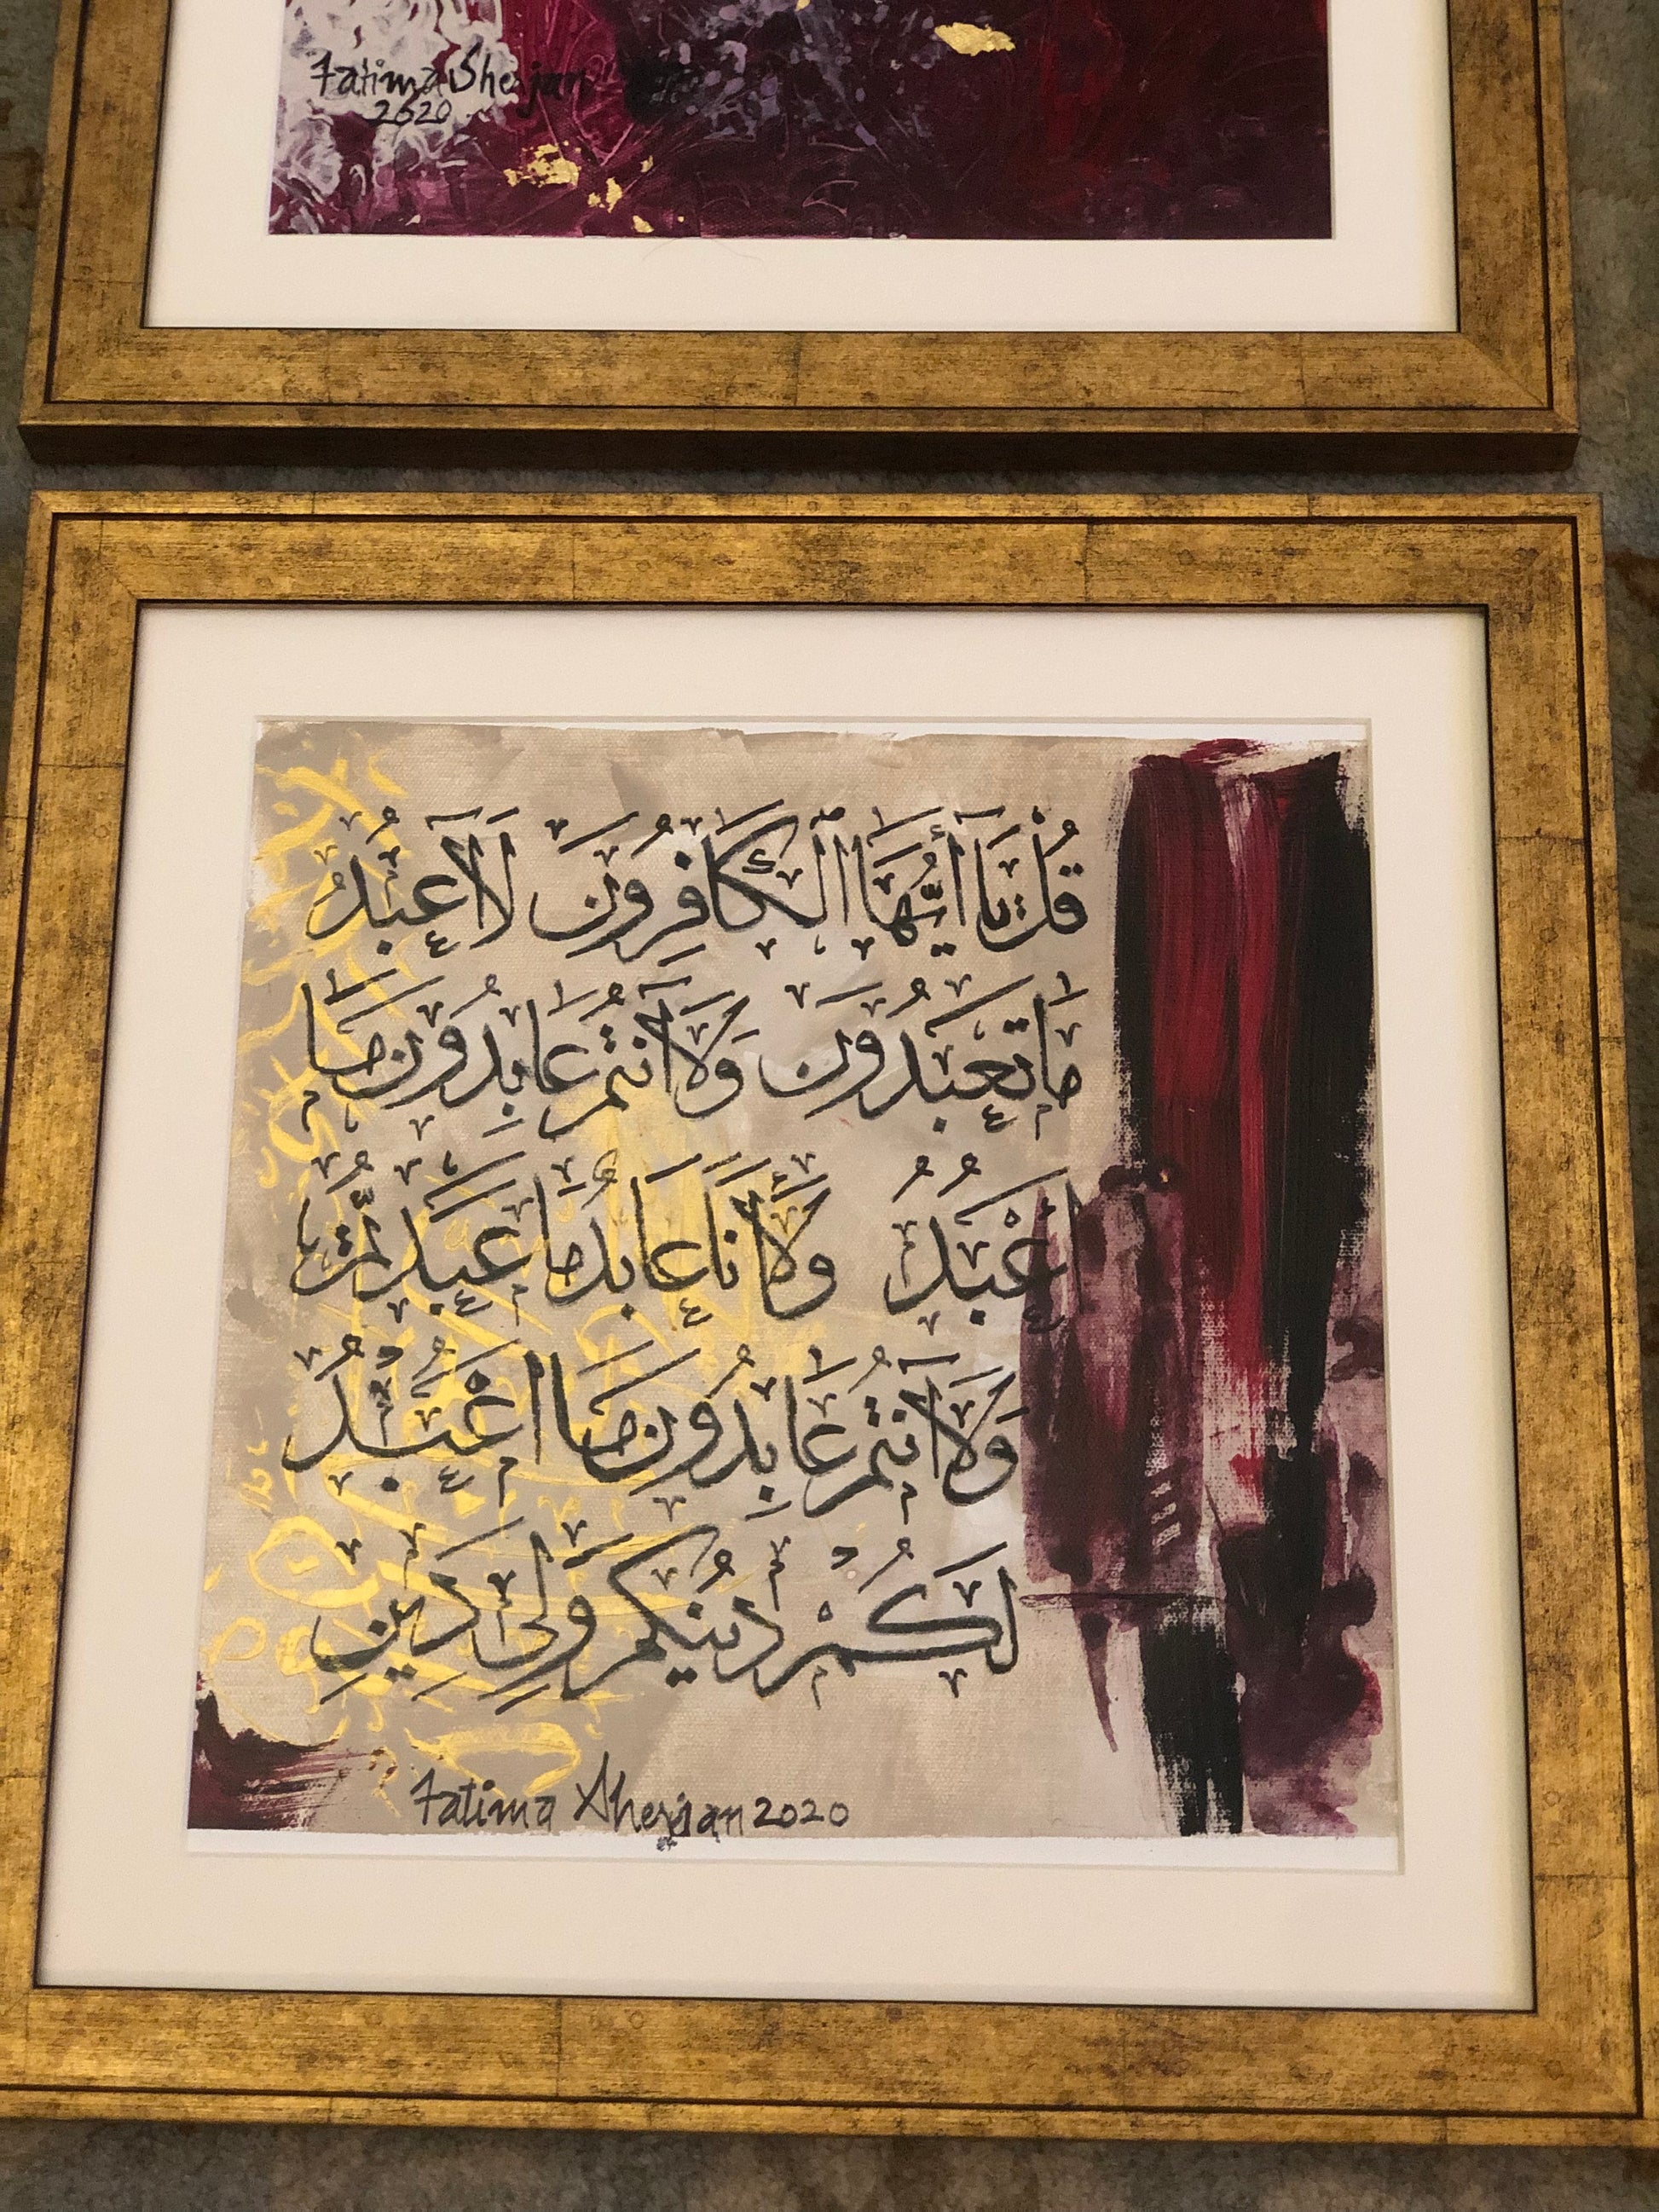 Fatima Sherjan
2020
قُلْ يَا أَيُّهَا الْكَافِرُونَ لَا أَعْبُدُ
مَا تَعْبُدُونَ وَلَا أَنْتُمْ عَابِدُونَ مَا
أَعْبُدُ وَلَا أَنَا عَابِدٌ مَا عَبَدتُّمْ
وَلَا أَنْتُمْ عَابِدُونَ مَا أَعْبُدُ
لَكُمْ دِينُكُمْ وَلِيَ دِينِ
Fatima Sherjan 2020